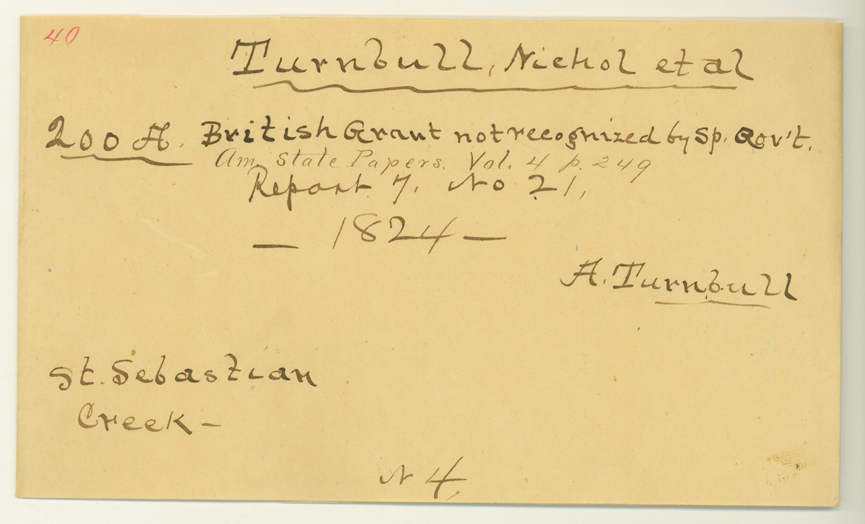 40
Turnbull, Nichol et al
200 A. British Grant not recognized by Sp. Gov't.
Am. State Papers. Vol. 4 p. 249
Report 7. No 21,
— 1824 —
A. Turnbull
St. Sebastian
Creek –
N 4.